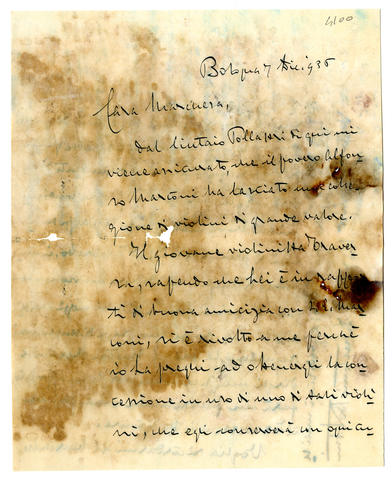 4100
Bologna 7 Dic. 1936
Cara Marchesa,
Dal liutaio Pollastri di qui mi
viene assicurato, che il povero Alfon-
so Marconi ha lasciato una colle-
zione di violini di grande valore.
Il giovane violinista Traver-
si, sapendo che Lei è in rappor-
ti di buona amicizia con S.E. Mar-
coni, si è rivolto a me perché
io la preghi ad ottenergli la con-
cessione in uso di uno di dati violi-
ni, che egli conserverà con ogni cu-